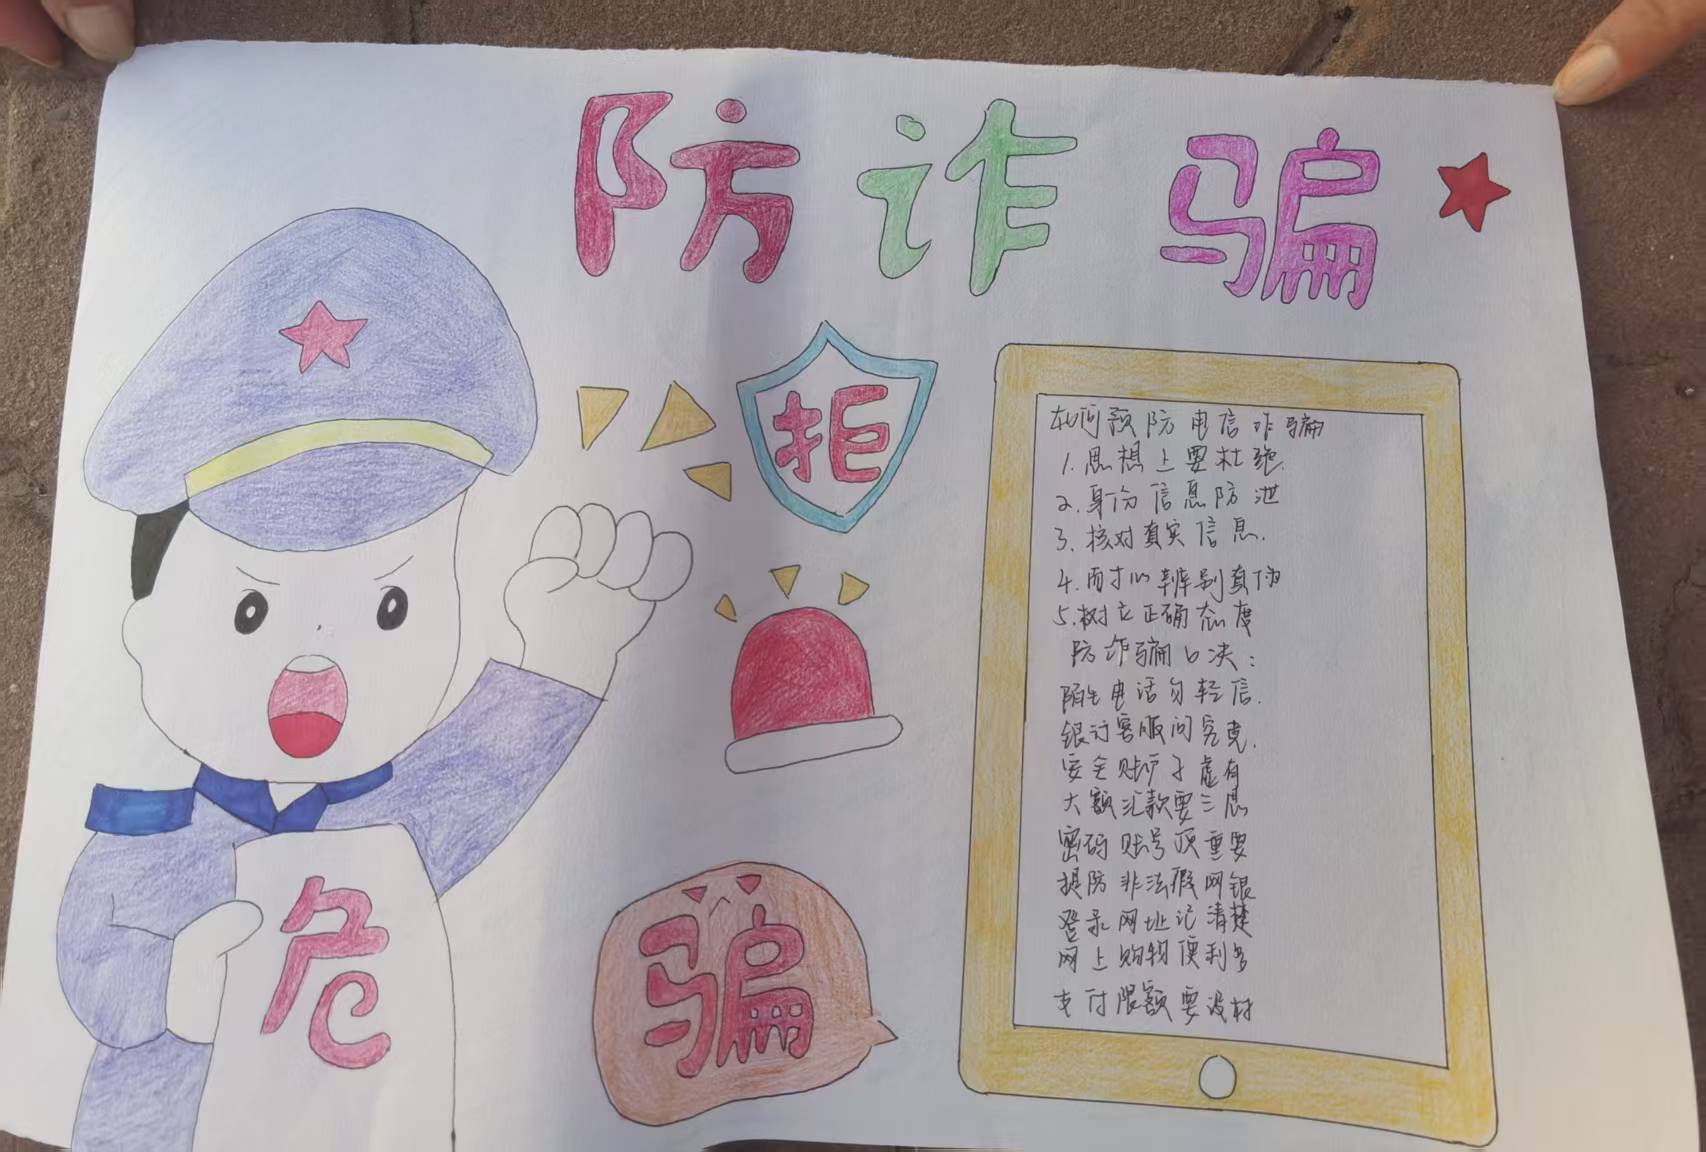 防诈骗
拒
危
骗
如何预防电信诈骗
1.思想上要杜绝.
2.身份信息防泄
3.核对真实信息.
4.而寸心辨别真伪
5.树立正确态度
防诈骗口决:
陌生电话勿轻信.
银行客服问究竟.
安全账户子虚有
大额汇款要三思
密码账号顶重要
提防非法假网银
登录网址记清楚
网上购物便利多
支付限额要设材